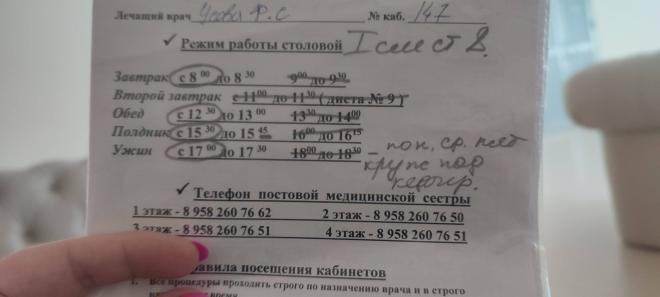 Лечащий врач Усова Ф.С № каб. 147
✓ Режим работы столовой I см ст 8.
Завтрак с 8 00 до 8 30 9 00 до 9 30
Второй завтрак с 11 00 до 11 30 ( диета № 9 )
Обед с 12 30 до 13 00 13 30 до 14 00
Полдник с 15 30 до 15 45 16 00 до 16 15
Ужин с 17 00 до 17 30 18 00 до 18 30 – пон, ср. пят
под
✓ Телефон постовой медицинской сестры
1 этаж - 8 958 260 76 62 2 этаж - 8 958 260 76 50
3 этаж - 8 958 260 76 51 4 этаж - 8 958 260 76 51
равила посещения кабинетов
1. Все процедуры проходить строго по назначению врача и в строго
время